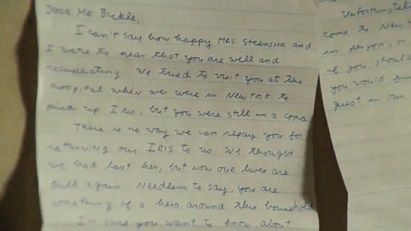 Dear Mr Bickle,
I can't say how happy Mrs Steensma and
I were to hear that you are well and
recuperating. We tried to visit you at the
hospital when we were in New York to
pick up Iris, but you were still in a coma
There is no way we can repay you for
returning our IRIS to us. We thought
we had lost her, but now our lives are
full again. Needless to say, you are
something of a hero around this household
I'm sure you want to know about
Unfortunatel
come to New
in person, o
if you should
you would fin
guest in our